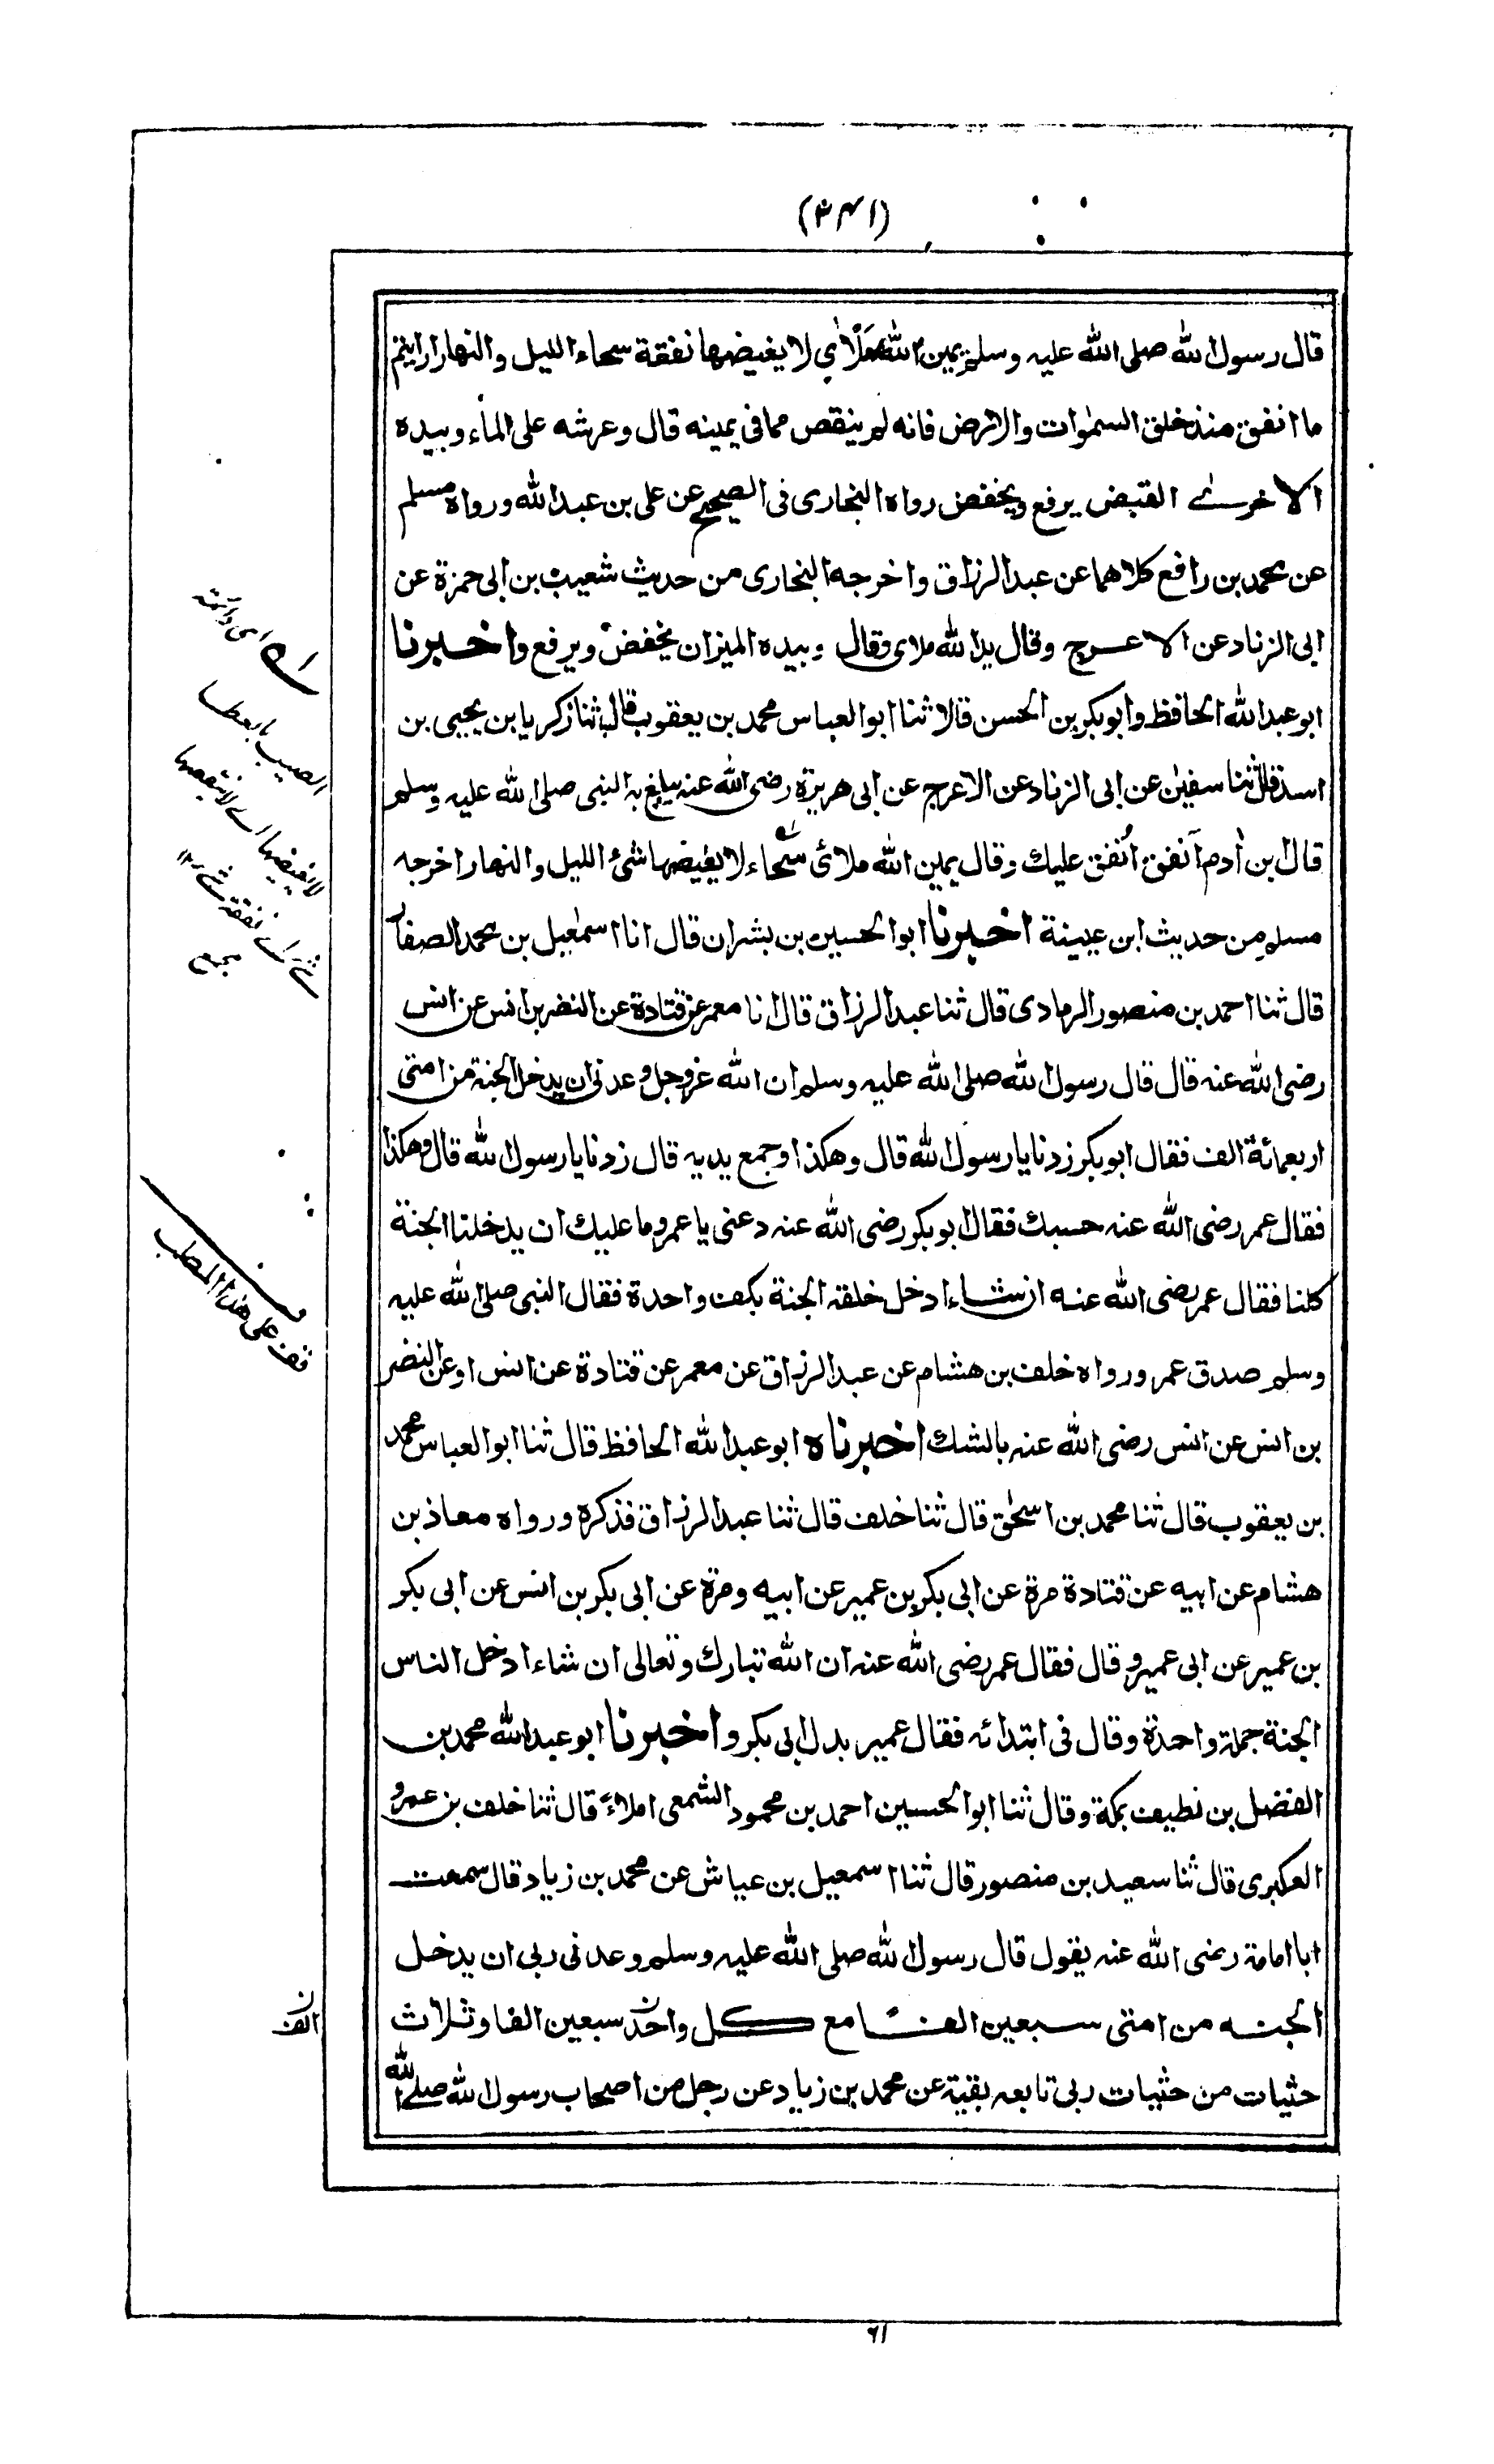 (٢٤١)
قال رسول الله صلى الله عليه وسلم يمين الله ملأي لا يغيضها نفقة سحاء الليل والنهار ارايتم
ما انفق منذ خلق السمٰوات والارض فانه لم ينقص مما فى يمينه قال وعرشه على الماء وبيده
الاخرے القبض يرفع ويخفض رواه البخارى فى الصحيح عن على بن عبد الله ورواه مسلم
عن محمد بن رافع كلاهما عن عبد الرزاق واخرجه البخارى من حديث شعيب بن ابى حمزة عن
ابى الزناد عن الاعرج وقال يد الله ملاى وقال وبيده الميزان يخفض ويرفع واخبرنا
ابو عبد الله الحافظ وابو بكر بن الحسن قالا ثنا ابو العباس محمد بن يعقوب قال ثنا زكريا بن يحيى بن
اسد قال ثنا سفين عن ابى الزناد عن الاعرج عن ابى هريرة رضى الله عنه يبلغ به النبى صلى الله عليه وسلم
قال ابن اٰدم اَنفق اُنفق عليك وقال يمين الله ملائ سحاء لا يغيضها شئ الليل والنهار اخرجه
مسلم من حديث ابن عيينة اخبرنا ابو الحسين بن بشران قال انا اسمٰعيل بن محمد الصفار
قال ثنا احمد بن منصور الرمادى قال ثنا عبد الرزاق قال انا معمر عن قتادة عن النضر بن انس عن انس
رضى الله عنه قال قال رسول الله صلى الله عليه وسلم ان الله عز وجل وعدنى ان يدخل الجنة من امتى
اربعمائة الف فقال ابو بكر زدنا يا رسول الله قال وهكذا وجمع يديه قال زدنا يا رسول الله قال وهكذا
فقال عمر رضى الله عنه حسبك فقال ابو بكر رضى الله عنه دعنى يا عمر وما عليك ان يدخلنا الجنة
كلنا فقال عمر رضى الله عنه ان شاء ادخل خلقه الجنة بكف واحدة فقال النبى صلى الله عليه
وسلم صدق عمر ورواه خلف بن هشام عن عبد الرزاق عن معمر عن قتادة عن انس او عن النضر
بن انس عن انس رضى الله عنه بالشك اخبرناه ابو عبد الله الحافظ قال ثنا ابو العباس محمد
بن يعقوب قال ثنا محمد بن اسحٰق قال ثنا خلف قال ثنا عبد الرزاق فذكره ورواه معاذ بن
هشام عن ابيه عن قتادة مرة عن ابى بكر بن عمير عن ابيه ومرة عن ابى بكر بن انس عن ابى بكر
بن عمير عن ابى عمير وقال فقال عمر رضى الله عنه ان الله تبارك وتعالى ان شاء ادخل الناس
الجنة جملة واحدة وقال فى ابتدائه فقال عمير بدل ابى بكر واخبرنا ابو عبد الله محمد بن
الفضل بن نظيف بمكة وقال ثنا ابو الحسين احمد بن محمود الشمعى املاءً قال ثنا خلف بن عمرو
العكبرى قال ثنا سعيد بن منصور قال ثنا اسمعيل بن عياش عن محمد بن زياد قال سمعت
ابا امامة رضى الله عنه يقول قال رسول الله صلى الله عليه وسلم وعدنى ربى ان يدخل
الجنه من امتى سبعين الفا مع كل واحد سبعين الفا وثلاث
حثيات من حثيات ربى تابعه بقية عن محمد بن زياد عن رجل من اصحاب رسول الله صلے الله
اى دائمة
الصب بالعطا
لا يغيضها اے لا ينقصها
شئ اے نفقة
مجمع
قف على هذا المطلب
ن
الف
٦١